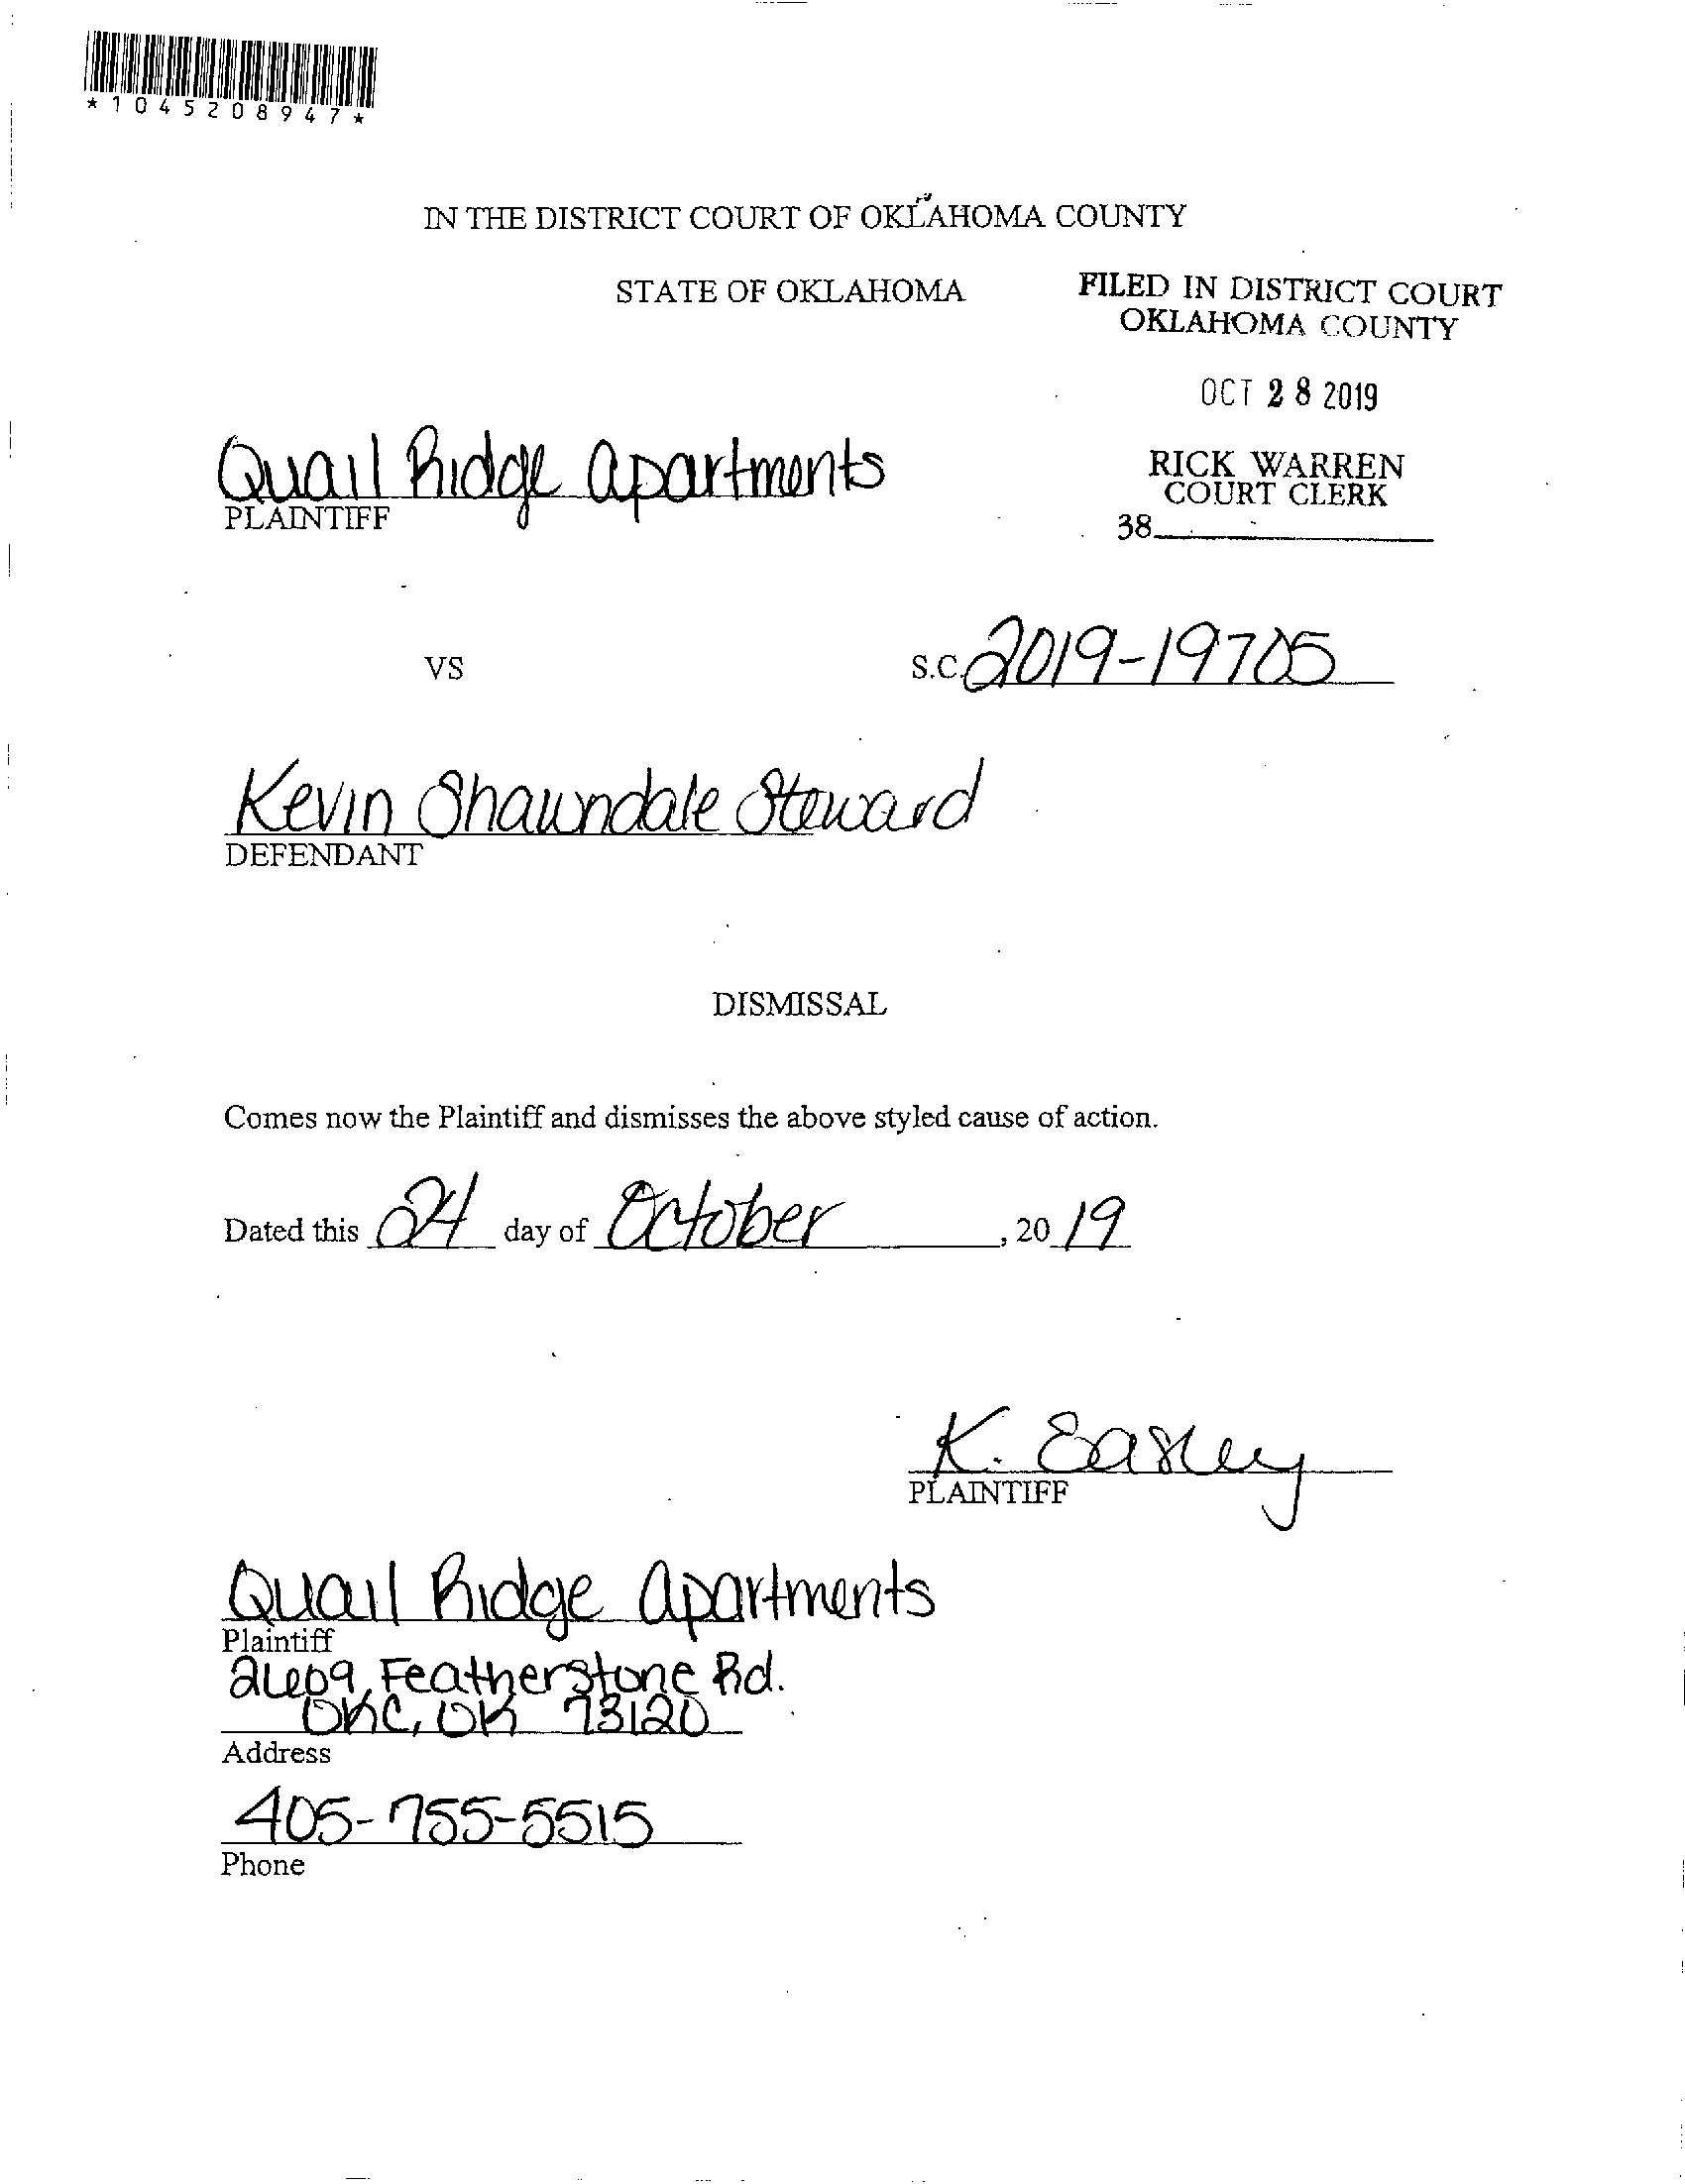 *1045208947*
IN THE DISTRICT COURT OF OKLAHOMA COUNTY
STATE OF OKLAHOMA
FILED IN DISTRICT COURT
OKLAHOMA COUNTY
OCT 28 2019
RICK WARREN
COURT CLERK
38
Quail Ridge Apartments
PLAINTIFF
VS
S.C. 2019-19705
Kevin Shawndale Steward
DEFENDANT
DISMISSAL
Comes now the Plaintiff and dismisses the above styled cause of action.
Dated this 24 day of October, 20 19
K. Easley
PLAINTIFF
Quail Ridge Apartments
Plaintiff
2609 Featherstone Rd.
OKC, OK 73120
Address
405-755-5515
Phone